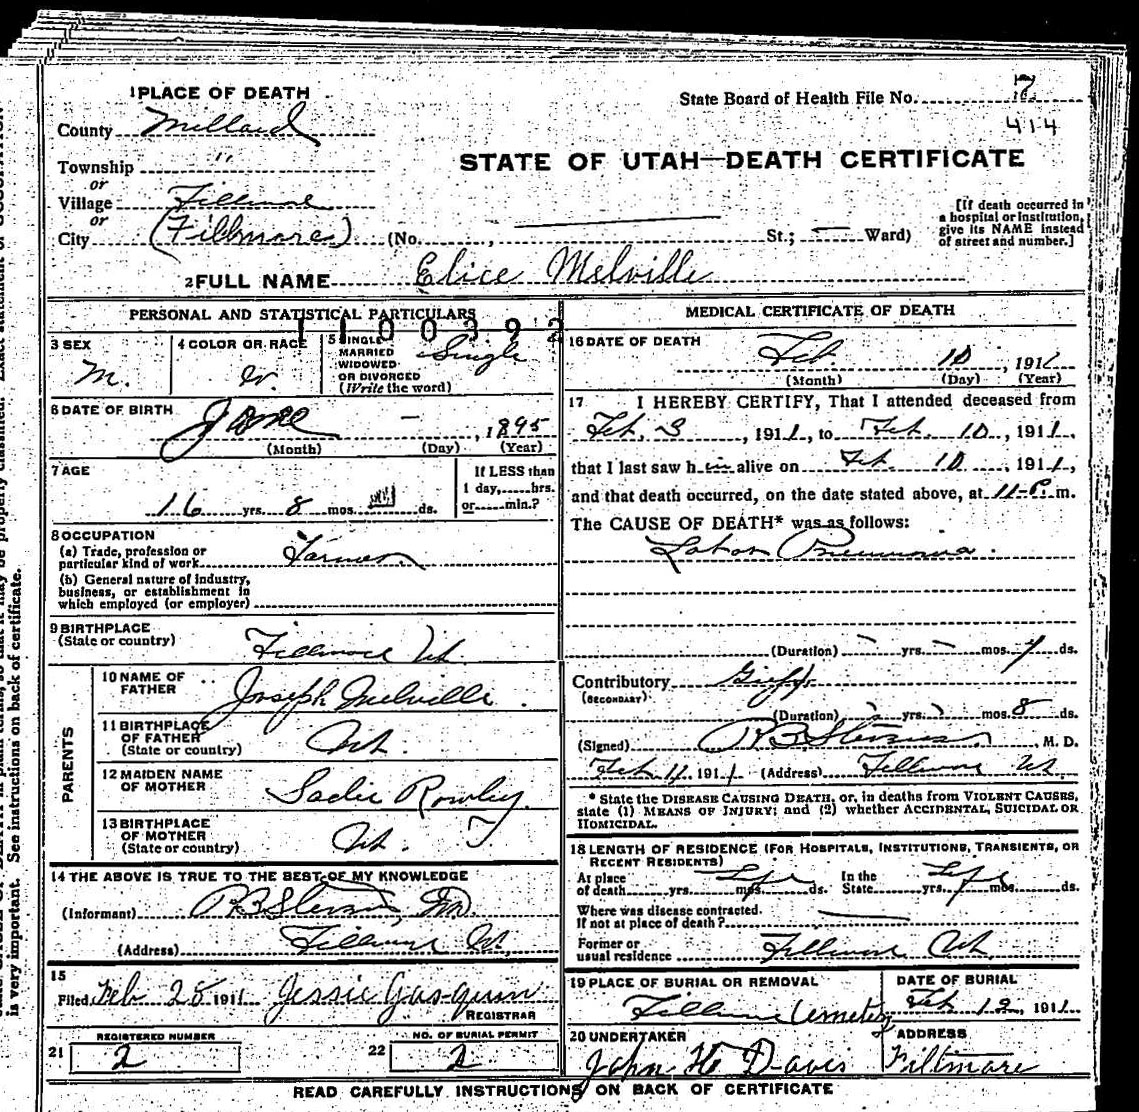 1 PLACE OF DEATH
State Board of Health File No. 7
County Millard
414
Township "
STATE OF UTAH—DEATH CERTIFICATE
or
Village Fillmore
or
City (Fillmore) (No. , St.; Ward)
[If death occurred in
a hospital or institution,
give its NAME instead
of street and number.]
2 FULL NAME Elice Melville
PERSONAL AND STATISTICAL PARTICULARS
1100392
3 SEX
M.
4 COLOR OR RACE
W.
5 SINGLE
MARRIED
WIDOWED
OR DIVORCED
(Write the word)
Single
6 DATE OF BIRTH
June — , 1895
(Month) (Day) (Year)
7 AGE
16 yrs. 8 mos. ds.
If LESS than
1 day, hrs.
or min.?
8 OCCUPATION
(a) Trade, profession or
particular kind of work Farmer
(b) General nature of industry,
business, or establishment in
which employed (or employer)
9 BIRTHPLACE
(State or country)
Fillmore Ut.
PARENTS
10 NAME OF
FATHER
Joseph Melville.
11 BIRTHPLACE
OF FATHER
(State or country)
Ut.
12 MAIDEN NAME
OF MOTHER
Sadie Rowley
13 BIRTHPLACE
OF MOTHER
(State or country)
Ut.
14 THE ABOVE IS TRUE TO THE BEST OF MY KNOWLEDGE
(Informant) R B Stevens, MD.
(Address) Fillmore Ut.
15
Filed Feb 28 1911 Jessie Gasquinn
REGISTRAR
REGISTERED NUMBER
21 2
NO. OF BURIAL PERMIT
22 2
MEDICAL CERTIFICATE OF DEATH
16 DATE OF DEATH
Feb. 10 , 1911
(Month) (Day) (Year)
17 I HEREBY CERTIFY, That I attended deceased from
Feb. 3 , 1911, to Feb. 10 , 1911,
that I last saw him alive on Feb. 10 , 1911,
and that death occurred, on the date stated above, at 11-P. m.
The CAUSE OF DEATH* was as follows:
Lobar Pneumonia.
(Duration) - yrs. - mos. 7 ds.
Contributory Grippe
(SECONDARY)
(Duration) yrs. mos. 8 ds.
(Signed) R B Stevens. M. D.
Feb 11 1911 (Address) Fillmore Ut.
* State the DISEASE CAUSING DEATH, or, in deaths from VIOLENT CAUSES,
state (1) MEANS OF INJURY; and (2) whether ACCIDENTAL, SUICIDAL OR
HOMICIDAL.
18 LENGTH OF RESIDENCE (FOR HOSPITALS, INSTITUTIONS, TRANSIENTS, OR
RECENT RESIDENTS)
At place
of death Life yrs. mos. ds.
In the
State Life yrs. mos. ds.
Where was disease contracted.
If not at place of death?
Former or
usual residence Fillmore Ut.
19 PLACE OF BURIAL OR REMOVAL
Fillmore Cemetery
DATE OF BURIAL
Feb 12, 1911
20 UNDERTAKER
John H Davis
ADDRESS
Fillmore
READ CAREFULLY INSTRUCTIONS ON BACK OF CERTIFICATE
is very important. See instructions on back of certificate.